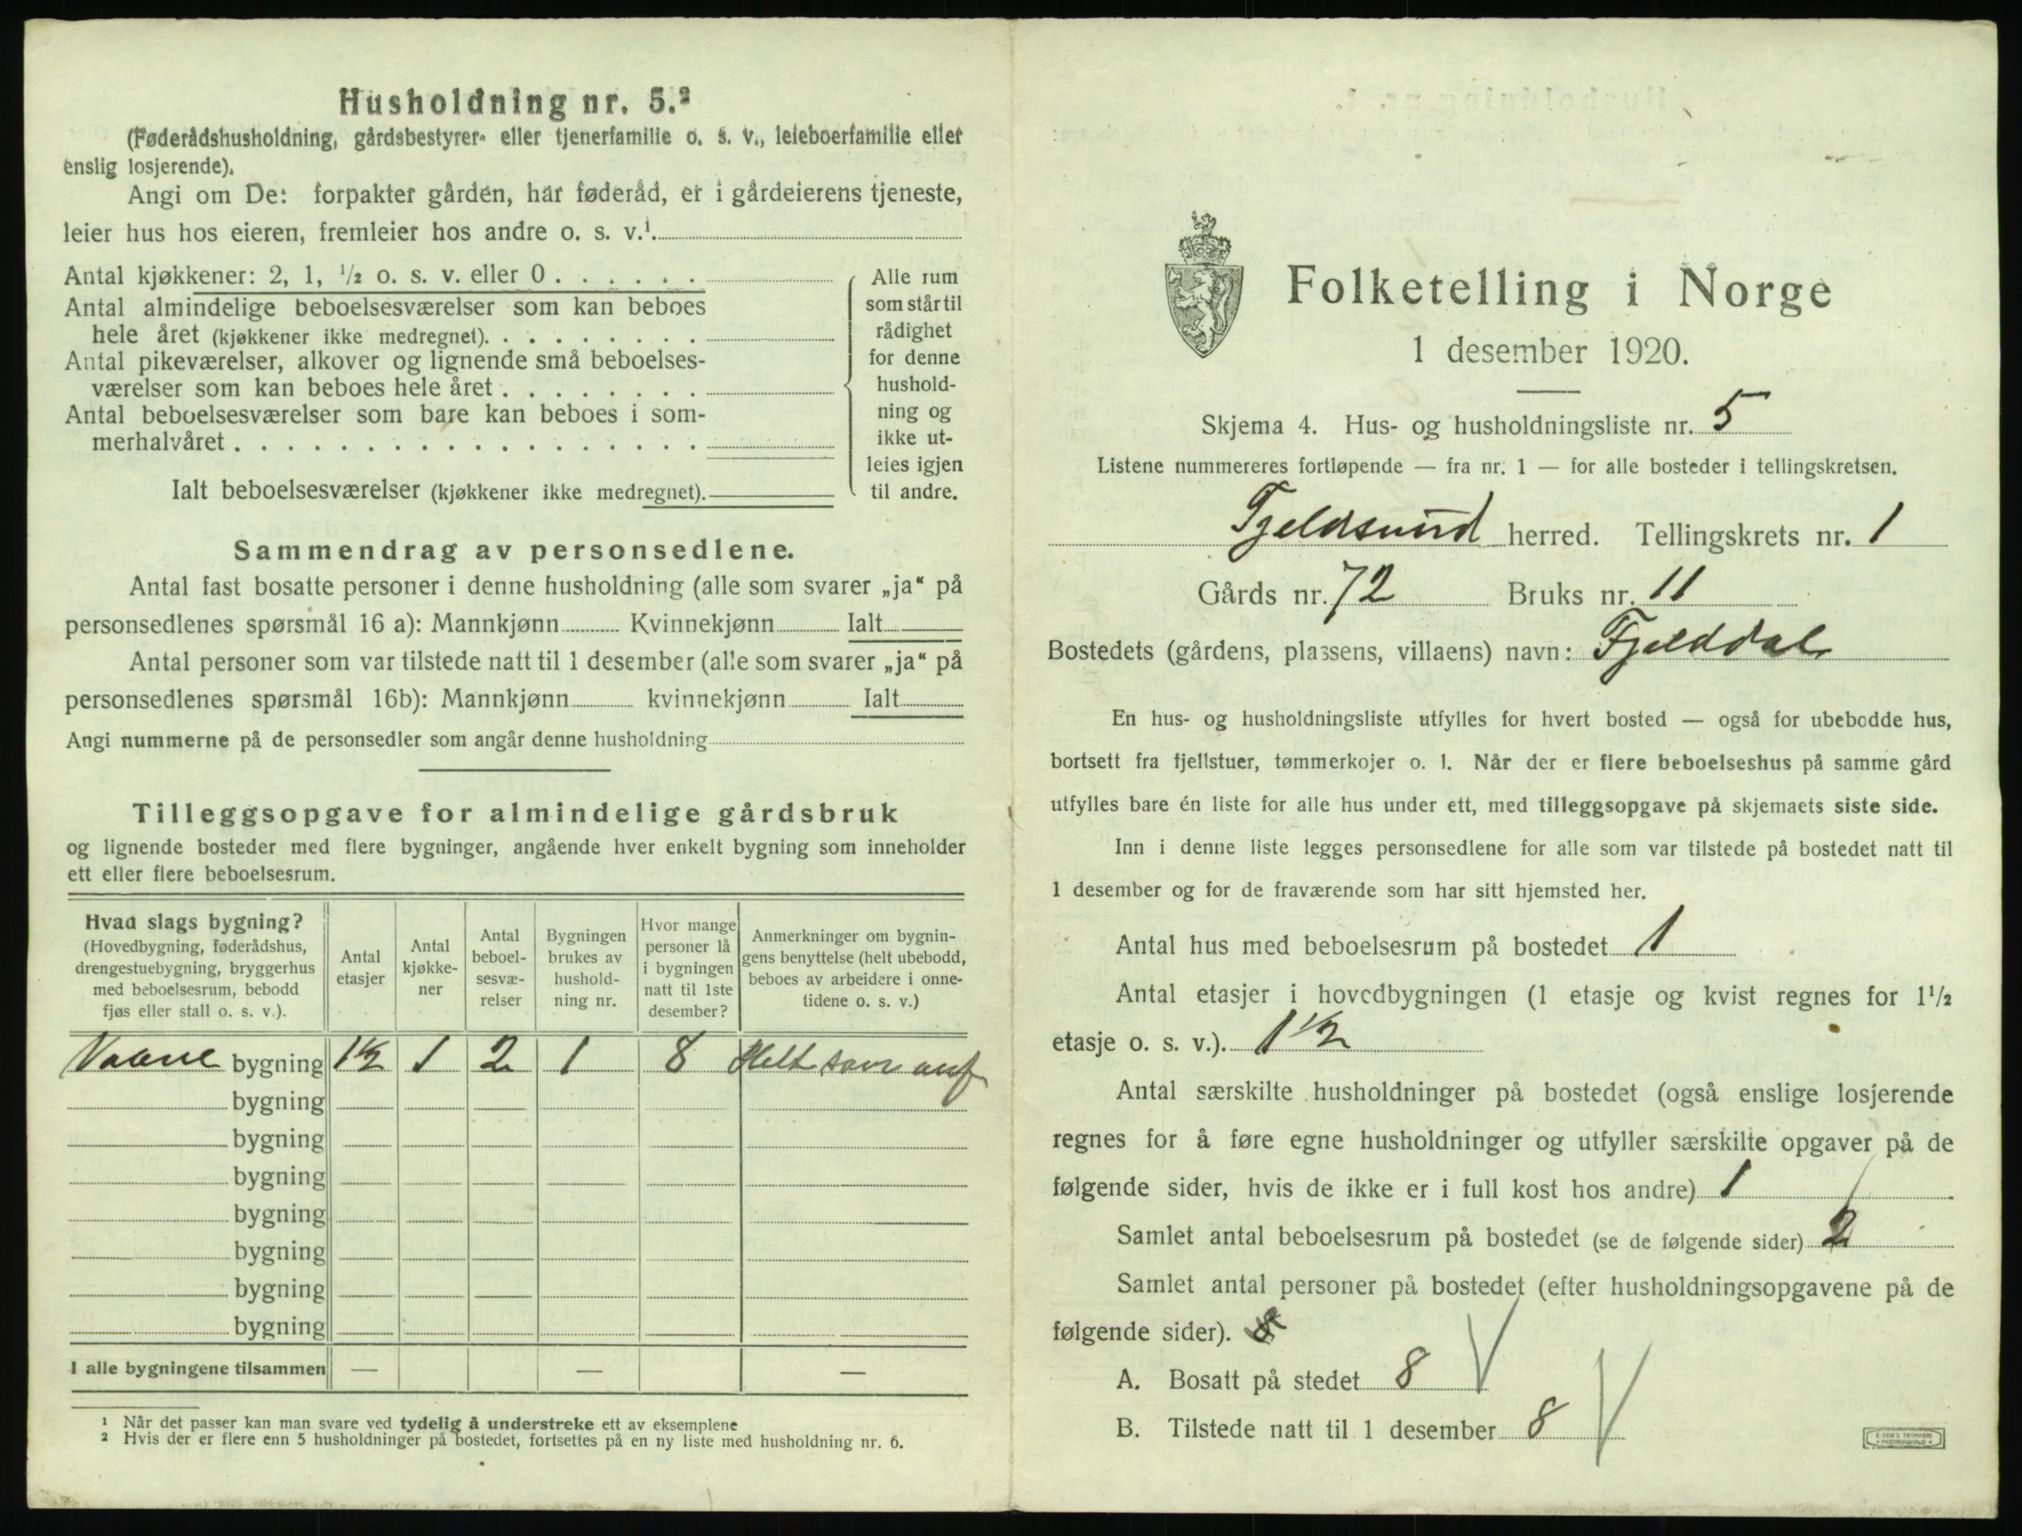 Husholdning nr. 5.²
(Føderådshusholdning, gårdsbestyrer- eller tjenerfamilie o. s. v., leieboerfamilie eller
enslig losjerende).
Angi om De: forpakter gården, har føderåd, er i gårdeierens tjeneste,
leier hus hos eieren, fremleier hos andre o. s. v.¹
Antal kjøkkener: 2, 1, ½ o. s. v. eller 0 . . . . . .
Antal almindelige beboelsesværelser som kan beboes
hele året (kjøkkener ikke medregnet). . . . . . . . .
Antal pikeværelser, alkover og lignende små beboelses-
værelser som kan beboes hele året . . . . . . . .
Antal beboelsesværelser som bare kan beboes i som-
merhalvåret . . . . . . . . . . . . . . . . . .
Ialt beboelsesværelser (kjøkkener ikke medregnet).
Alle rum
som står til
rådighet
for denne
hushold-
ning og
ikke ut-
leies igjen
til andre.
Sammendrag av personsedlene.
Antal fast bosatte personer i denne husholdning (alle som svarer „ja“ på
personsedlenes spørsmål 16 a): Mannkjønn Kvinnekjønn Ialt
Antal personer som var tilstede natt til 1 desember (alle som svarer „ja“ på
personsedlenes spørsmål 16b): Mannkjønn kvinnekjønn Ialt
Angi nummerne på de personsedler som angår denne husholdning
Tilleggsopgave for almindelige gårdsbruk
og lignende bosteder med flere bygninger, angående hver enkelt bygning som inneholder
ett eller flere beboelsesrum.
Hvad slags bygning?
(Hovedbygning, føderådshus,
drengestuebygning, bryggerhus
med beboelsesrum, bebodd
fjøs eller stall o. s. v.).
Antal
etasjer
Antal
kjøkke-
ner
Antal
beboel-
sesvæ-
relser
Bygningen
brukes av
hushold-
ning nr.
Hvor mange
personer lå
i bygningen
natt til 1ste
desember?
Anmerkninger om bygnin-
gens benyttelse (helt ubebodd,
beboes av arbeidere i onne-
tidene o. s. v.)
bygning 1½ 1 2 1 8 Helt
bygning
bygning
bygning
bygning
bygning
bygning
bygning
I alle bygningene tilsammen — — —
¹ Når det passer kan man svare ved tydelig å understreke ett av eksemplene
² Hvis der er flere enn 5 husholdninger på bostedet, fortsettes på en ny liste med husholdning nr. 6.
Folketelling i Norge
1 desember 1920.
Skjema 4. Hus- og husholdningsliste nr. 5
Listene nummereres fortløpende — fra nr. 1 — for alle bosteder i tellingskretsen.
Fjeldsund herred. Tellingskrets nr. 1
Gårds nr. 72 Bruks nr. 11
Bostedets (gårdens, plassens, villaens) navn: Fjelddal
En hus- og husholdningsliste utfylles for hvert bosted — også for ubebodde hus,
bortsett fra fjellstuer, tømmerkojer o. l. Når der er flere beboelseshus på samme gård
utfylles bare én liste for alle hus under ett, med tilleggsopgave på skjemaets siste side.
Inn i denne liste legges personsedlene for alle som var tilstede på bostedet natt til
1 desember og for de fraværende som har sitt hjemsted her.
Antal hus med beboelsesrum på bostedet 1
Antal etasjer i hovedbygningen (1 etasje og kvist regnes for 1½
etasje o. s. v.). 1½
Antal særskilte husholdninger på bostedet (også enslige losjerende
regnes for å føre egne husholdninger og utfyller særskilte opgaver på de
følgende sider, hvis de ikke er i full kost hos andre) 1
Samlet antal beboelsesrum på bostedet (se de følgende sider) 2
Samlet antal personer på bostedet (efter husholdningsopgavene på de
følgende sider).
A. Bosatt på stedet 8
B. Tilstede natt til 1 desember 8